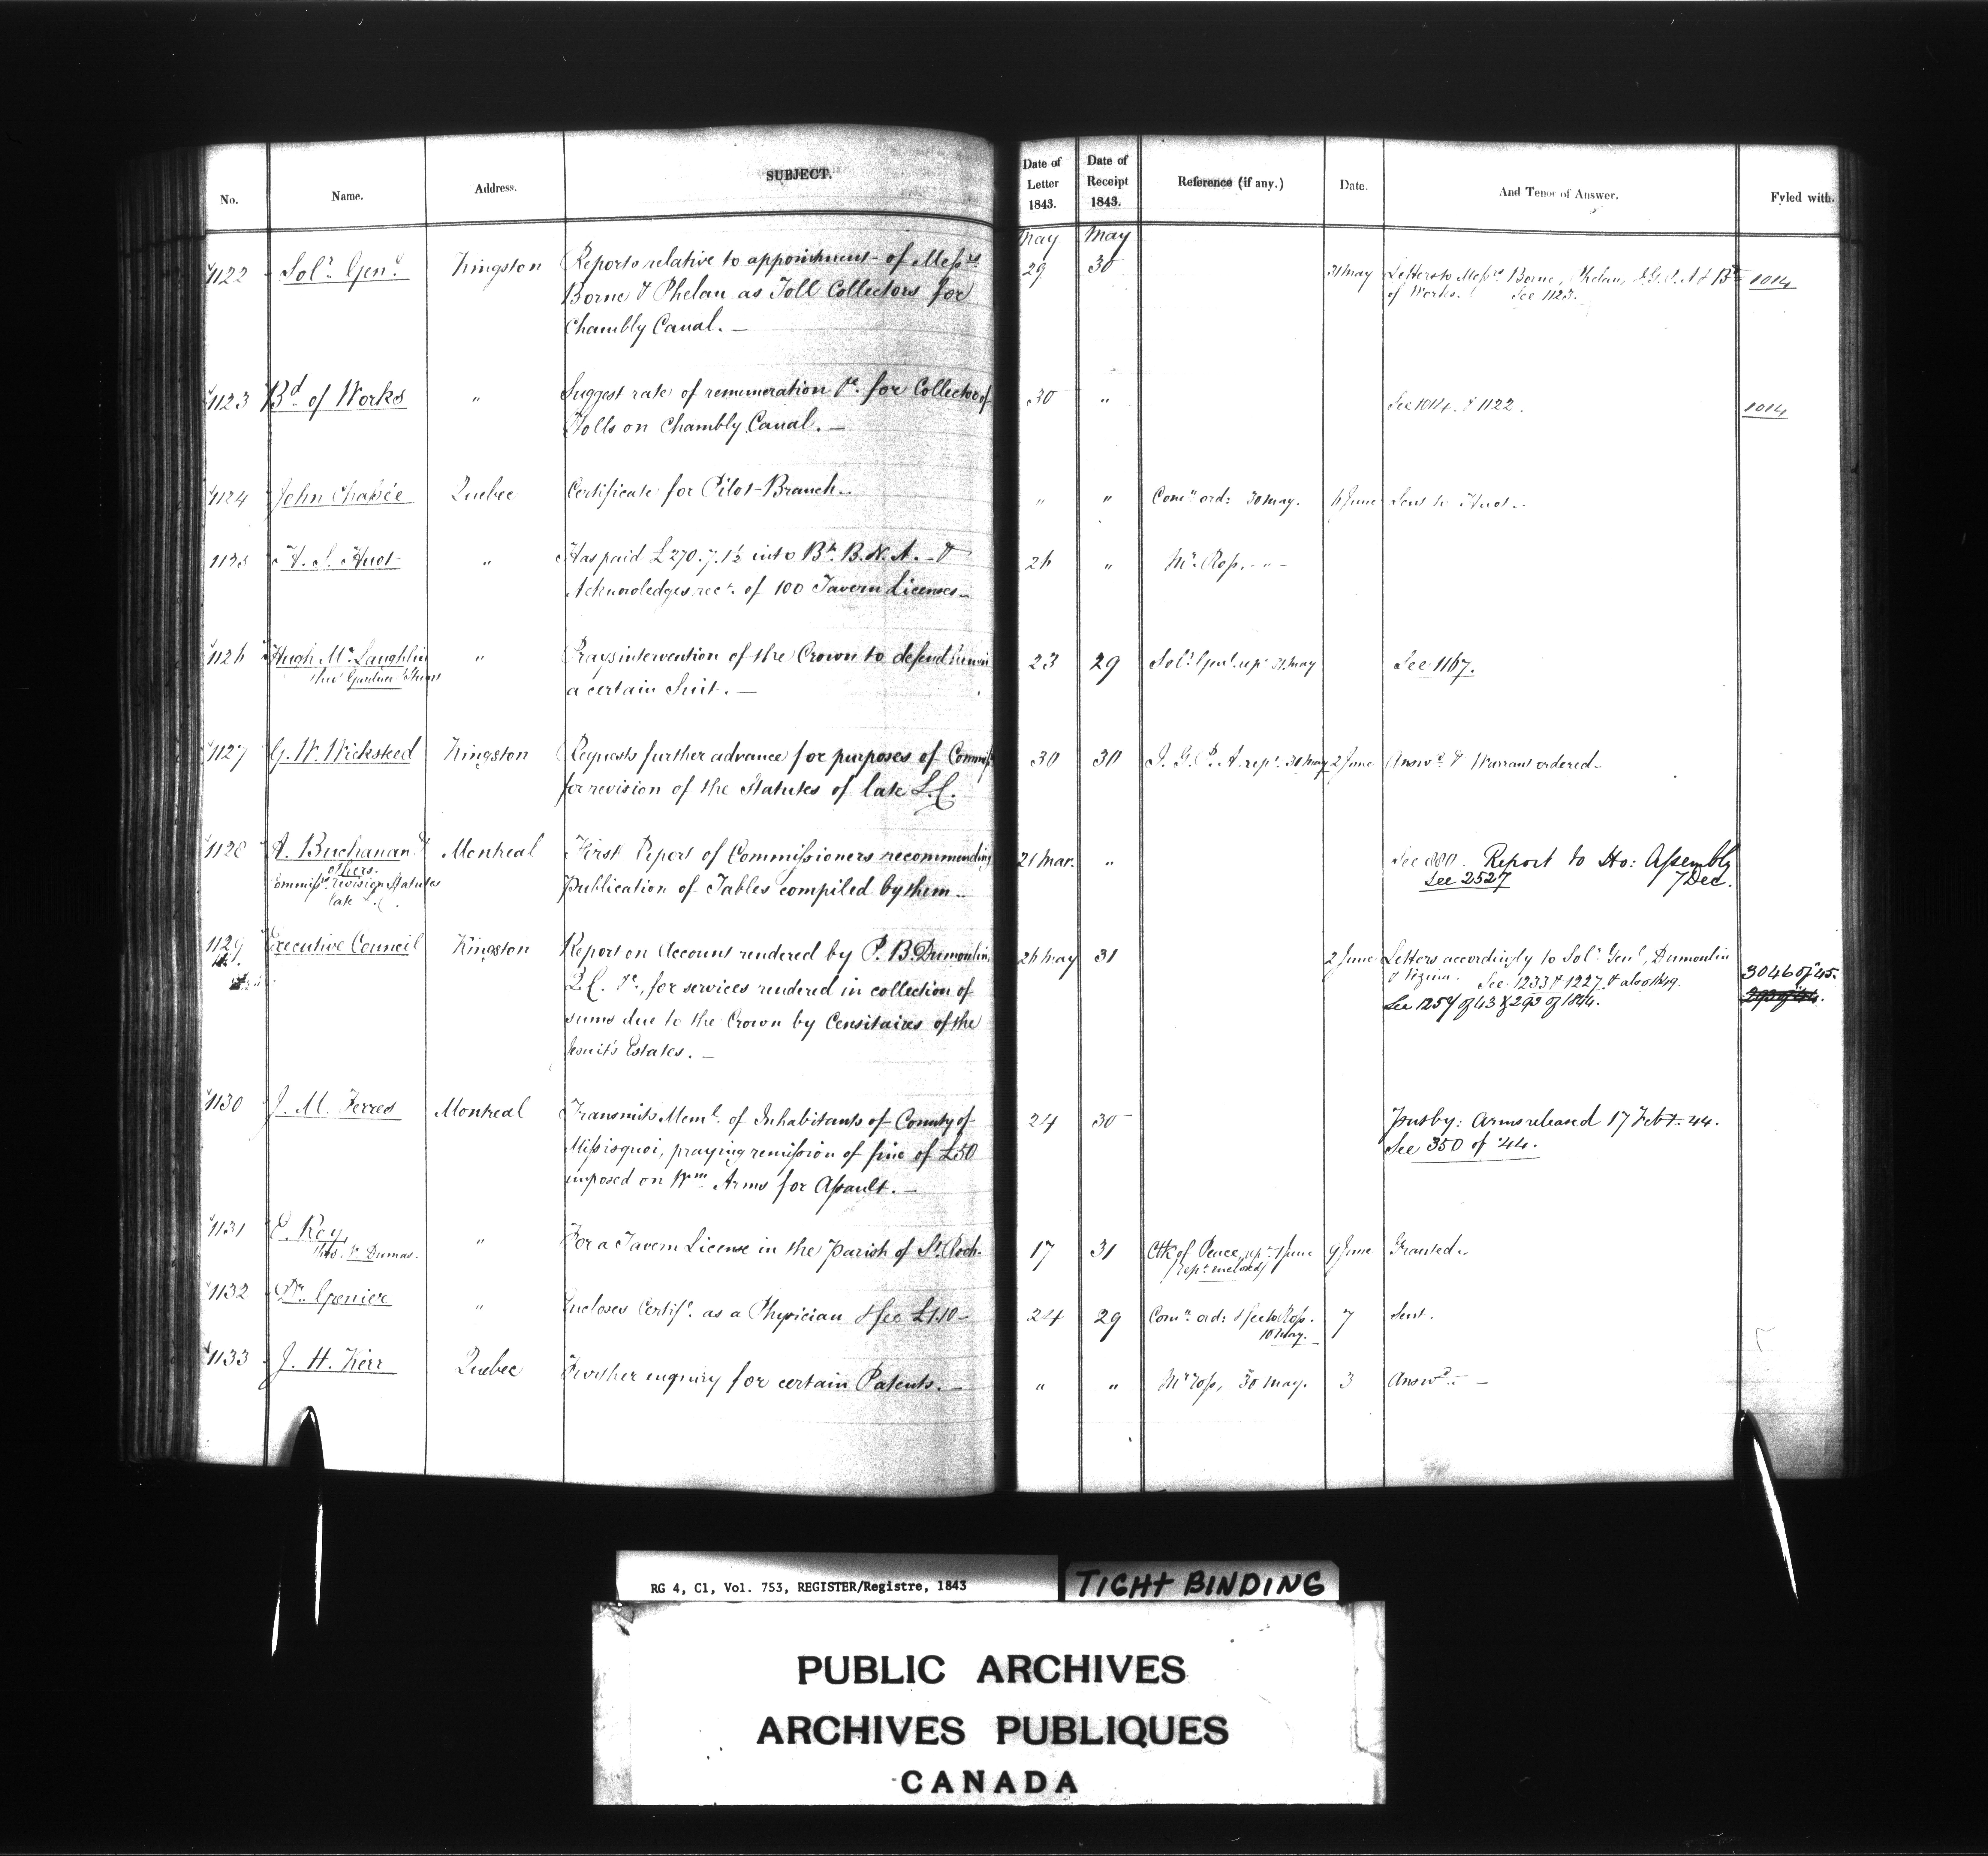 No. Name. Address. SUBJECT. Date of Letter 1843. Date of Receipt 1843. Reference (if any.) Date. And Tenor of Answer. Fyled with.
May May
1122 Solr. Genl. Kingston Reports relative to appointment of Messrs 29 30 31 May Letters to Messrs Borne, Phelan, I.G.P.A & Bd 1014
Borne & Phelan as Toll Collectors for of Works. See 1123.
Chambly Canal. —
1123 Bd of Works " Suggest rate of remuneration &c. for Collector of 30 " See 1014. & 1122. 1014
Tolls on Chambly Canal. —
1124 John Quebec Certificate for Pilot Branch. " " Comn. ord: 30 May. 6 June Sent to Huot.
1125 H. S. Huot " Has paid £270.7.1½ into Bk. B.N.A. — & 26 " Mr. Ross. - " -
Acknowledges rect. of 100 Tavern Licenses —
1126 Hugh McLaughlin " Prays intervention of the Crown to defend him in 23 29 Solr. Genl. rept. 31 May See 1167.
thro' a certain Suit. —
1127 G. W. Wicksteed Kingston Requests further advance for purposes of Commissn 30 30 I. G. P. A. rept. 30 May 2 June Answd. & Warrant ordered —
for revision of the Statutes of late L.C.
1128 A. Buchanan & Montreal First Report of Commissioners recommending 21 Mar. " See 880. Report to Ho: Assembly
others. publication of Tables compiled by them — See 2527 7 Dec.
Commissrs revision Statutes
late L.C.
1129 Executive Council Kingston Report on Account rendered by P. B. Dumoulin, 26 May 31 2 June Letters accordingly to Solr. Genl., Dumoulin
Q.C. &c., for services rendered in collection of & Vezina. See 1233 & 1227. & also 1649. 3046 of '45.
sums due to the Crown by Censitaires of the See 1259 of 43 & 293 of 1844. 293 of 44.
Jesuit's Estates. —
1130 J. M. Ferres Montreal Transmits Meml. of Inhabitants of County of 24 30 Arms released 17 Feby. 44.
Missisquoi, praying remission of fine of £50 See 350 of '44.
imposed on Wm. Arms for Assault. —
1131 Roy, " For a Tavern License in the parish of St. Roch. 17 31 Clk of Peace, rept. 1 June 9 June Granted.
thro. V. Dumas. (rept. enclosed)
1132 Dr. Grenier " Encloses Certife. as a Physician & fee £1.10 — 24 29 Comn. ord: & fee to Ross. 7 Sent.
10 May.
1133 J. H. Kerr Quebec Further enquiry for certain Patents. — " " Mr Ross, 30 May. 3 Answd. —
RG 4, C1, Vol. 753, REGISTER/Registre, 1843
TIGHT BINDING
PUBLIC ARCHIVES
ARCHIVES PUBLIQUES
CANADA